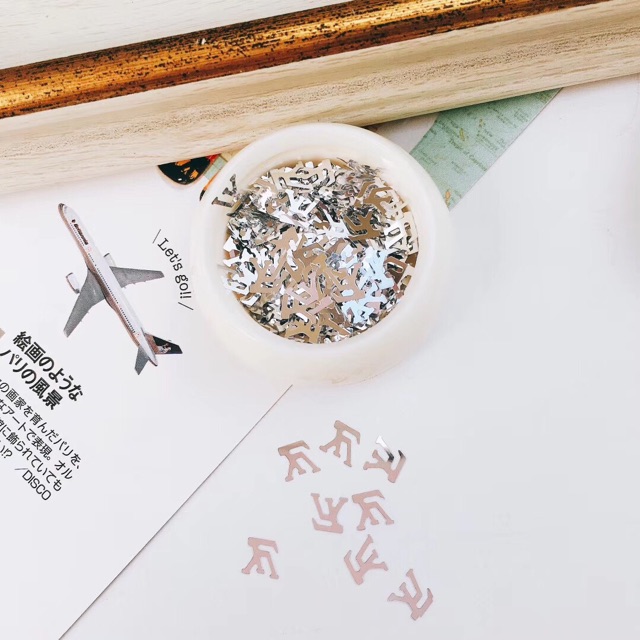 Let's go!!
絵画のような
パリの風景
の画家を育んだパリを、
なアートで表現。オル
に飾られていても
い!? ／DISCO